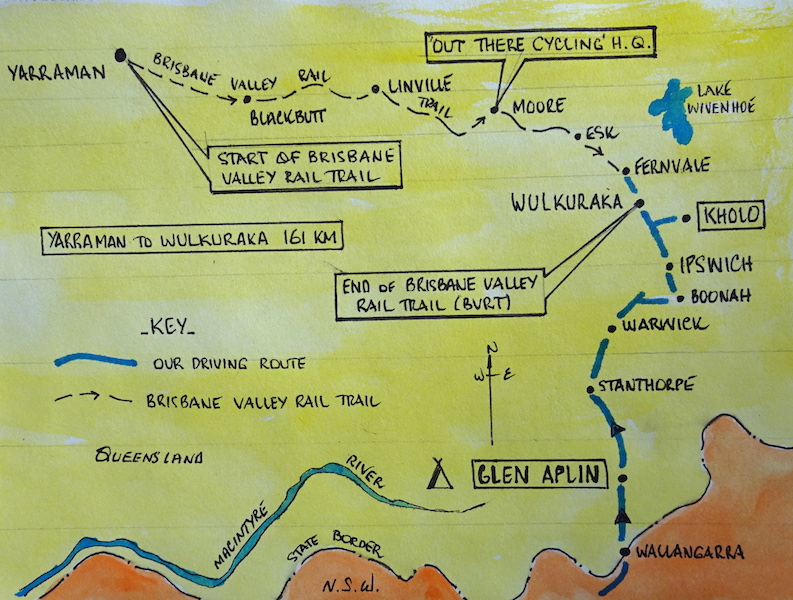 'OUT THERE CYCLING' H.Q.
YARRAMAN
BRISBANE VALLEY RAIL TRAIL
BLACKBUTT
LINVILLE
MOORE
ESK
LAKE
WIVENHOE
START OF BRISBANE
VALLEY RAIL TRAIL
FERNVALE
WULKURAKA
KHOLO
YARRAMAN TO WULKURAKA 161 KM
IPSWICH
END OF BRISBANE VALLEY
RAIL TRAIL (BVRT)
BOONAH
WARWICK
-KEY-
OUR DRIVING ROUTE
BRISBANE VALLEY RAIL TRAIL
N
W E
STANTHORPE
QUEENSLAND
GLEN APLIN
MACINTYRE RIVER
STATE BORDER
WALLANGARRA
N.S.W.